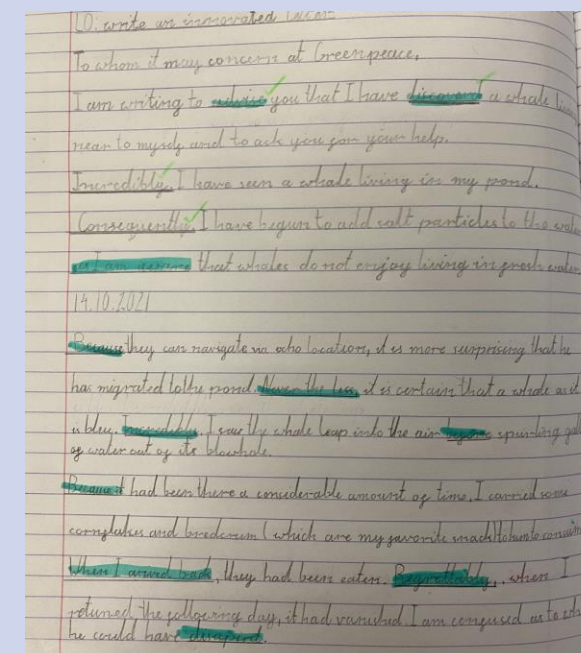 LO: write an innovated
To whom it may concern at Greenpeace,
I am writing to advise you that I have discoverd a whale
near to myself and to ask you for your help.
Incredibly, I have seen a whale living in my pond.
Consequently, I have begun to add salt particles to the
as I am that whales do not enjoy living in fresh water
14.10.2021
Because they can navigate via echo location, it is more surprising that he
has migrated to the pond. Never the less, it is certain that a whale as it
is blue. Incredibly, I saw the whale leap into the air before spurting
of water out of its blowhole.
Because it had been there a considerable amount of time, I carried some
cornflakes and (which are my favorite snack) to
When I arived back, they had been eaten. Regrettably, when I
retuned the following day, it had vanished. I am confused as to
he could have